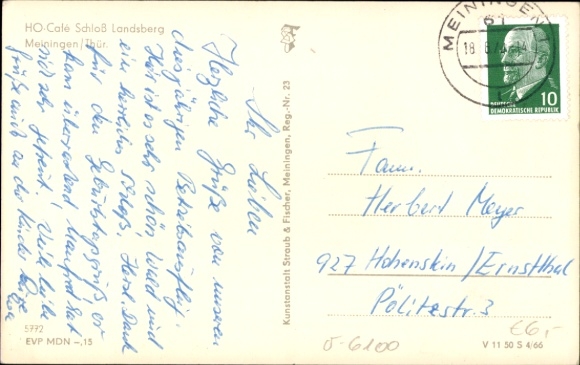 HO-Café Schloß Landsberg
Meiningen/Thür.
Ihr Lieben
Herzliche Grüße von unseren
diesjährigen Betriebsausflug.
Hier ist es sehr schön. Wald und
ein herrliches Schloß. Herzl. Dank
für den Geburtstagsgruß er
kam überraschend, Manfred hat
sich sehr gefreut. Viele liebe
Grüße auch an die Kinder
Eva
5772
EVP MDN -,15
Kunstanstalt Straub & Fischer, Meiningen, Reg.-Nr. 23
MEININGEN
61
18.6.
DEUTSCHE
DEMOKRATISCHE REPUBLIK
10
Fam.
Herbert Meyer
927 Hohenstein/Ernstthal
Pölitzstr. 3
€6,-
V 11 50 S 4/66